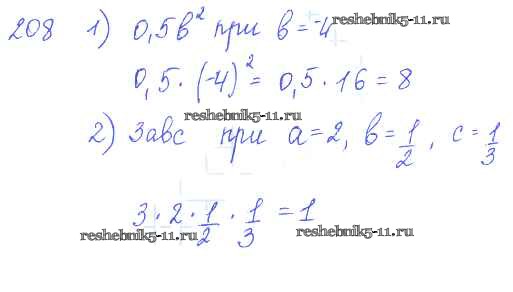 208 1) 0,5в² при в=-4
reshebnik5-11.ru
0,5·(-4)² = 0,5·16=8
reshebnik5-11.ru
2) 3авс при а=2, в=1/2, с=1/3
3·2·1/2·1/3=1
reshebnik5-11.ru reshebnik5-11.ru